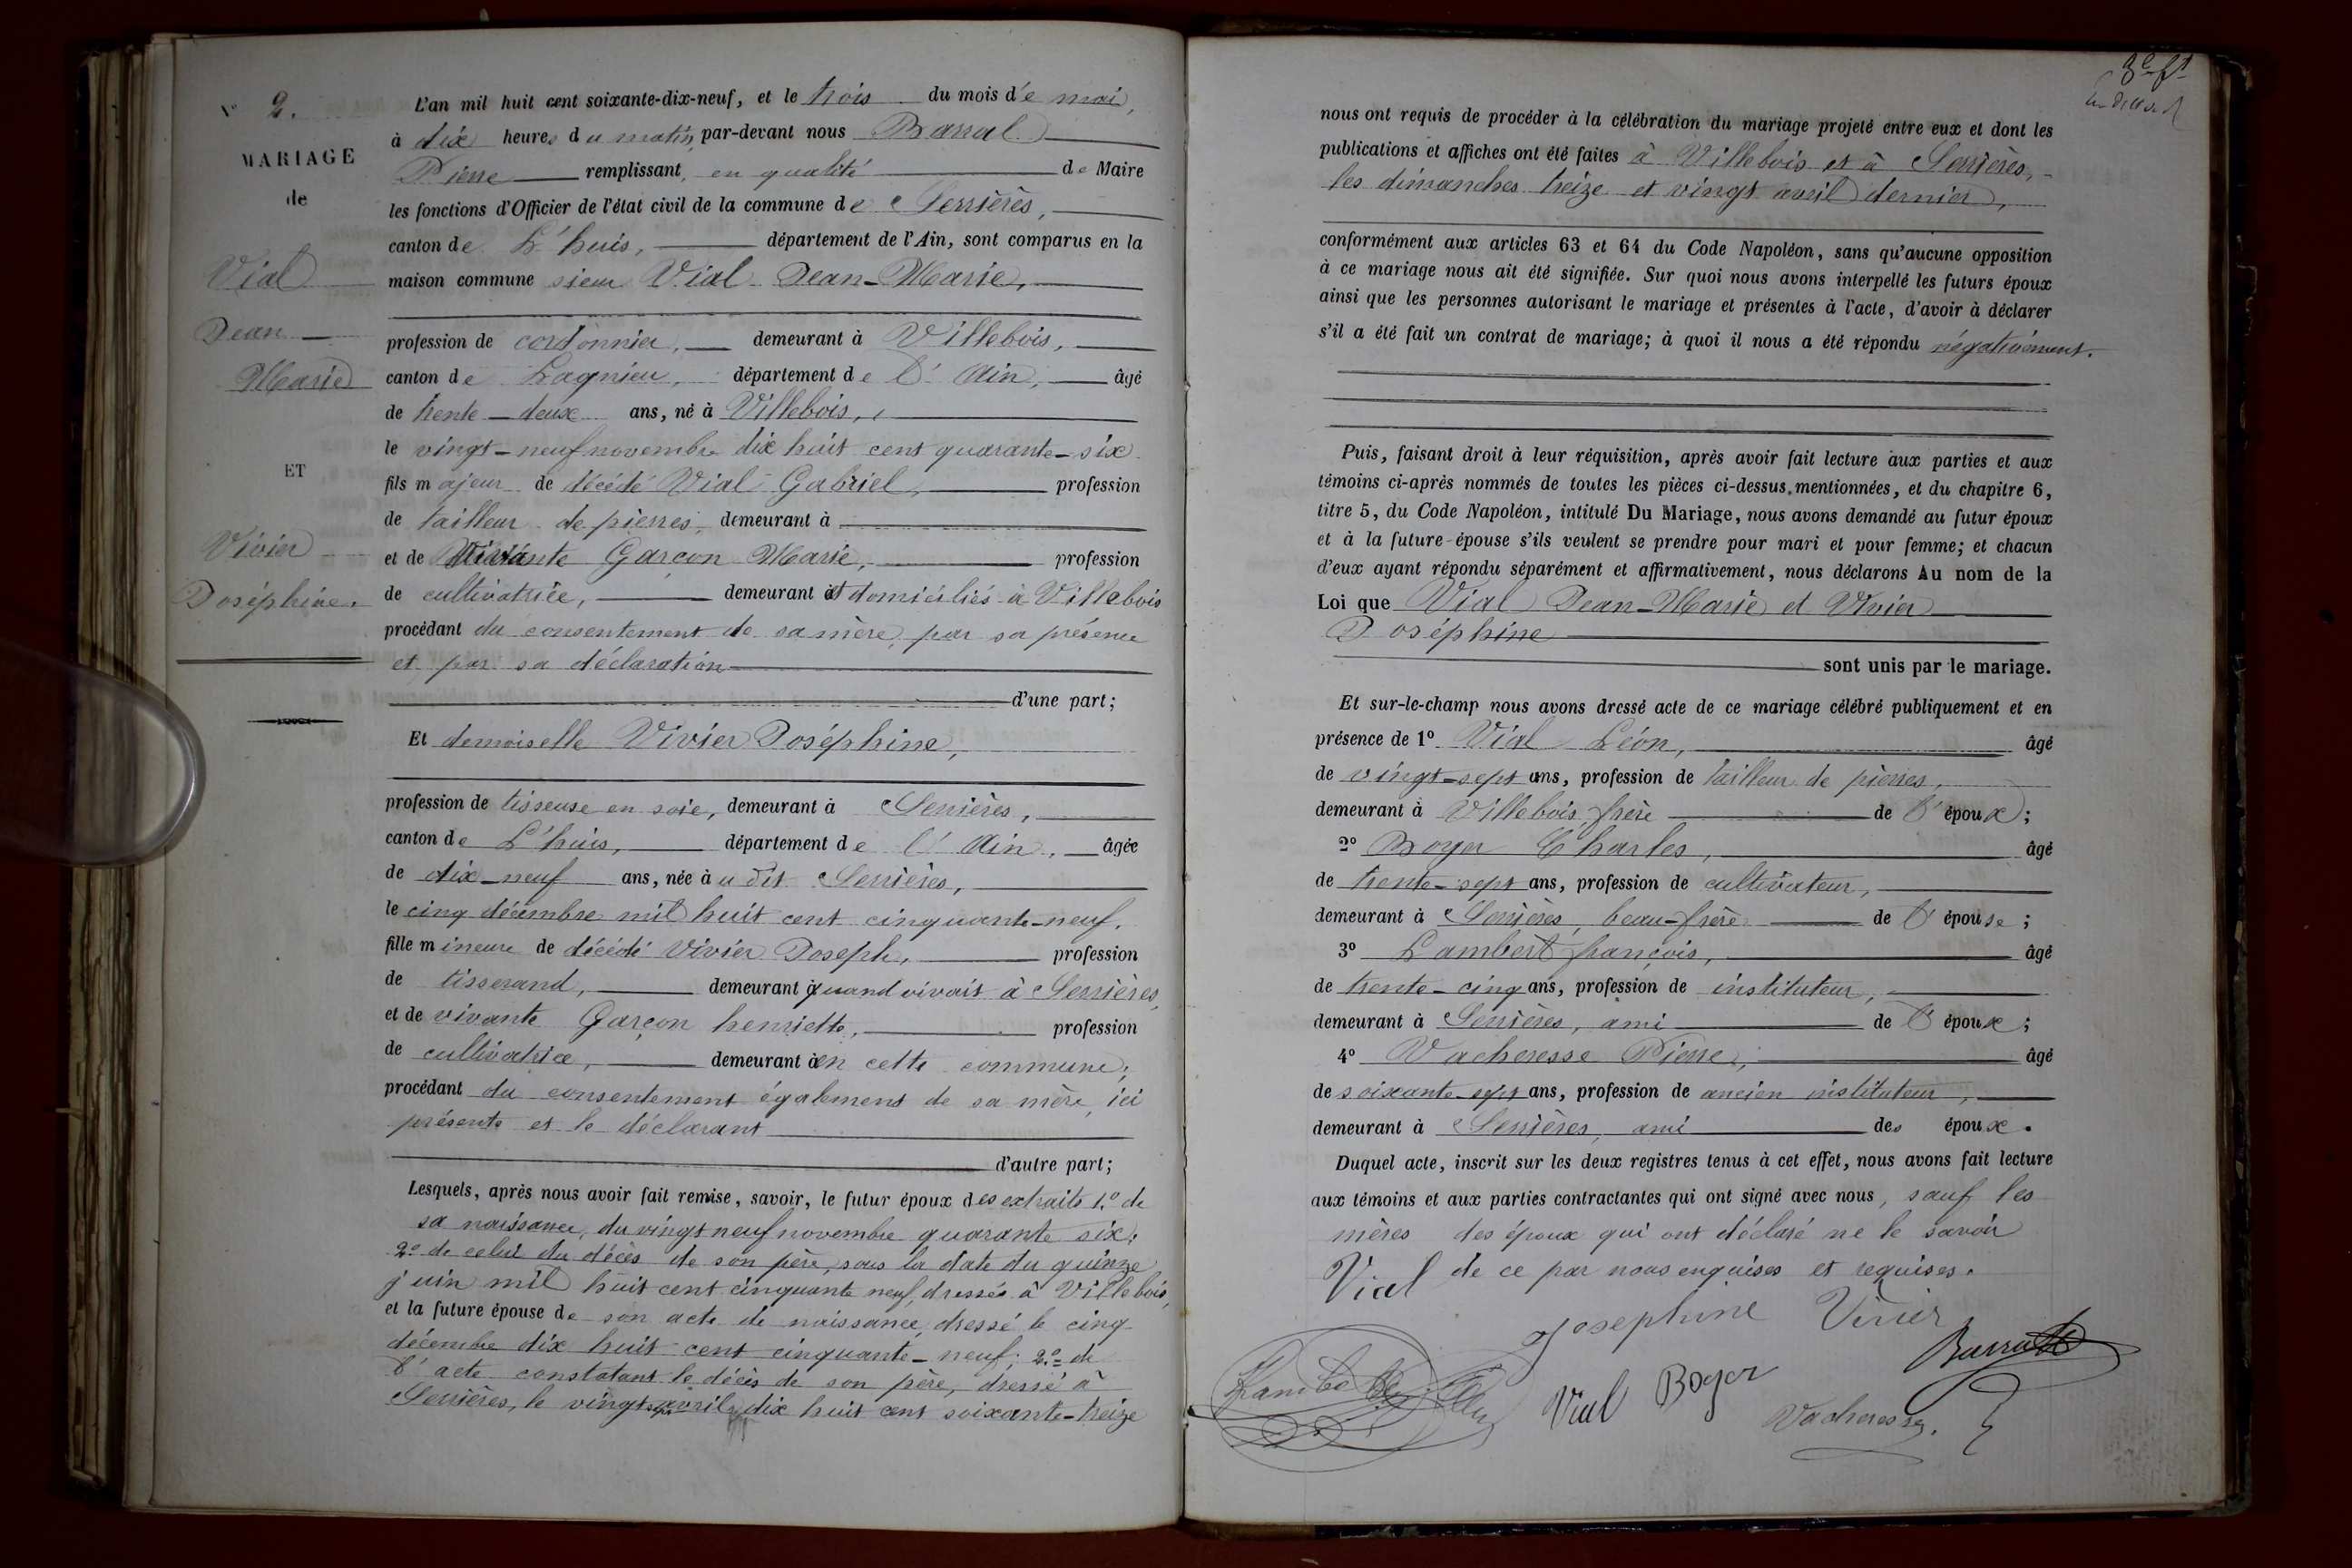 N° 2.
MARIAGE
de
Vial
Jean
Marie
ET
Vivier
Joséphine.
L'an mil huit cent soixante-dix-neuf, et le trois du mois de mai,
à dix heures du matin, par-devant nous Barral
Pierre remplissant, en qualité de Maire
les fonctions d'Officier de l'état civil de la commune de Serrières,
canton de L'huis, département de l'Ain, sont comparus en la
maison commune sieur Vial Jean-Marie,
profession de cordonnier, demeurant à Villebois,
canton de Lagnieu, département de l'Ain, âgé
de trente-deux ans, né à Villebois,
le vingt-neuf novembre dix huit cent quarante-six
fils majeur de décédé Vial Gabriel, profession
de tailleur de pierres, demeurant à
et de vivante Garçon Marie, profession
de cultivatrice, demeurant et domiciliés à Villebois
procédant du consentement de sa mère, par sa présence
et par sa déclaration
d'une part;
Et demoiselle Vivier Joséphine,
profession de tisseuse en soie, demeurant à Serrières,
canton de L'huis, département de l'Ain, âgée
de dix-neuf ans, née audit Serrières,
le cinq décembre mil huit cent cinquante-neuf,
fille mineure de décédé Vivier Joseph, profession
de tisserand, demeurant quand vivait à Serrières,
et de vivante Garçon henriette, profession
de cultivatrice, demeurant en cette commune;
procédant du consentement également de sa mère, ici
présente et le déclarant
d'autre part;
Lesquels, après nous avoir fait remise, savoir, le futur époux des extraits 1.° de
sa naissance, du vingt neuf novembre quarante six;
2.° de celui du décès de son père, sous la date du quinze
juin mil huit cent cinquante neuf, dressés à Villebois,
et la future épouse de son acte de naissance, dressé le cinq
décembre dix huit cent cinquante-neuf; 2.° de
l'acte constatant le décès de son père, dressé à
Serrières, le vingt sept avril dix huit cent soixante-treize
nous ont requis de procéder à la célébration du mariage projeté entre eux et dont les
publications et affiches ont été faites à Villebois et à Serrières,
les dimanches treize et vingt avril dernier,
conformément aux articles 63 et 64 du Code Napoléon, sans qu'aucune opposition
à ce mariage nous ait été signifiée. Sur quoi nous avons interpellé les futurs époux
ainsi que les personnes autorisant le mariage et présentes à l'acte, d'avoir à déclarer
s'il a été fait un contrat de mariage; à quoi il nous a été répondu négativement.
Puis, faisant droit à leur réquisition, après avoir fait lecture aux parties et aux
témoins ci-après nommés de toutes les pièces ci-dessus mentionnées, et du chapitre 6,
titre 5, du Code Napoléon, intitulé Du Mariage, nous avons demandé au futur époux
et à la future épouse s'ils veulent se prendre pour mari et pour femme; et chacun
d'eux ayant répondu séparément et affirmativement, nous déclarons Au nom de la
Loi que Vial Jean-Marie et Vivier
Joséphine
sont unis par le mariage.
Et sur-le-champ nous avons dressé acte de ce mariage célébré publiquement et en
présence de 1° Vial Léon, âgé
de vingt-sept ans, profession de tailleur de pierres,
demeurant à Villebois, frère de l'époux;
2° Boyer Charles, âgé
de trente-sept ans, profession de cultivateur,
demeurant à Serrières, beau-frère de l'épouse;
3° Lambert françois, âgé
de trente-cinq ans, profession de instituteur,
demeurant à Serrières, ami de l'époux;
4° Vacheresse Pierre, âgé
de soixante-sept ans, profession de ancien instituteur,
demeurant à Serrières, ami des époux.
Duquel acte, inscrit sur les deux registres tenus à cet effet, nous avons fait lecture
aux témoins et aux parties contractantes qui ont signé avec nous, sauf les
mères des époux qui ont déclaré ne le savoir
de ce par nous enquises et requises.
Vial
Josephine Vivier
Barral
Vial Boyer
Vacheresse